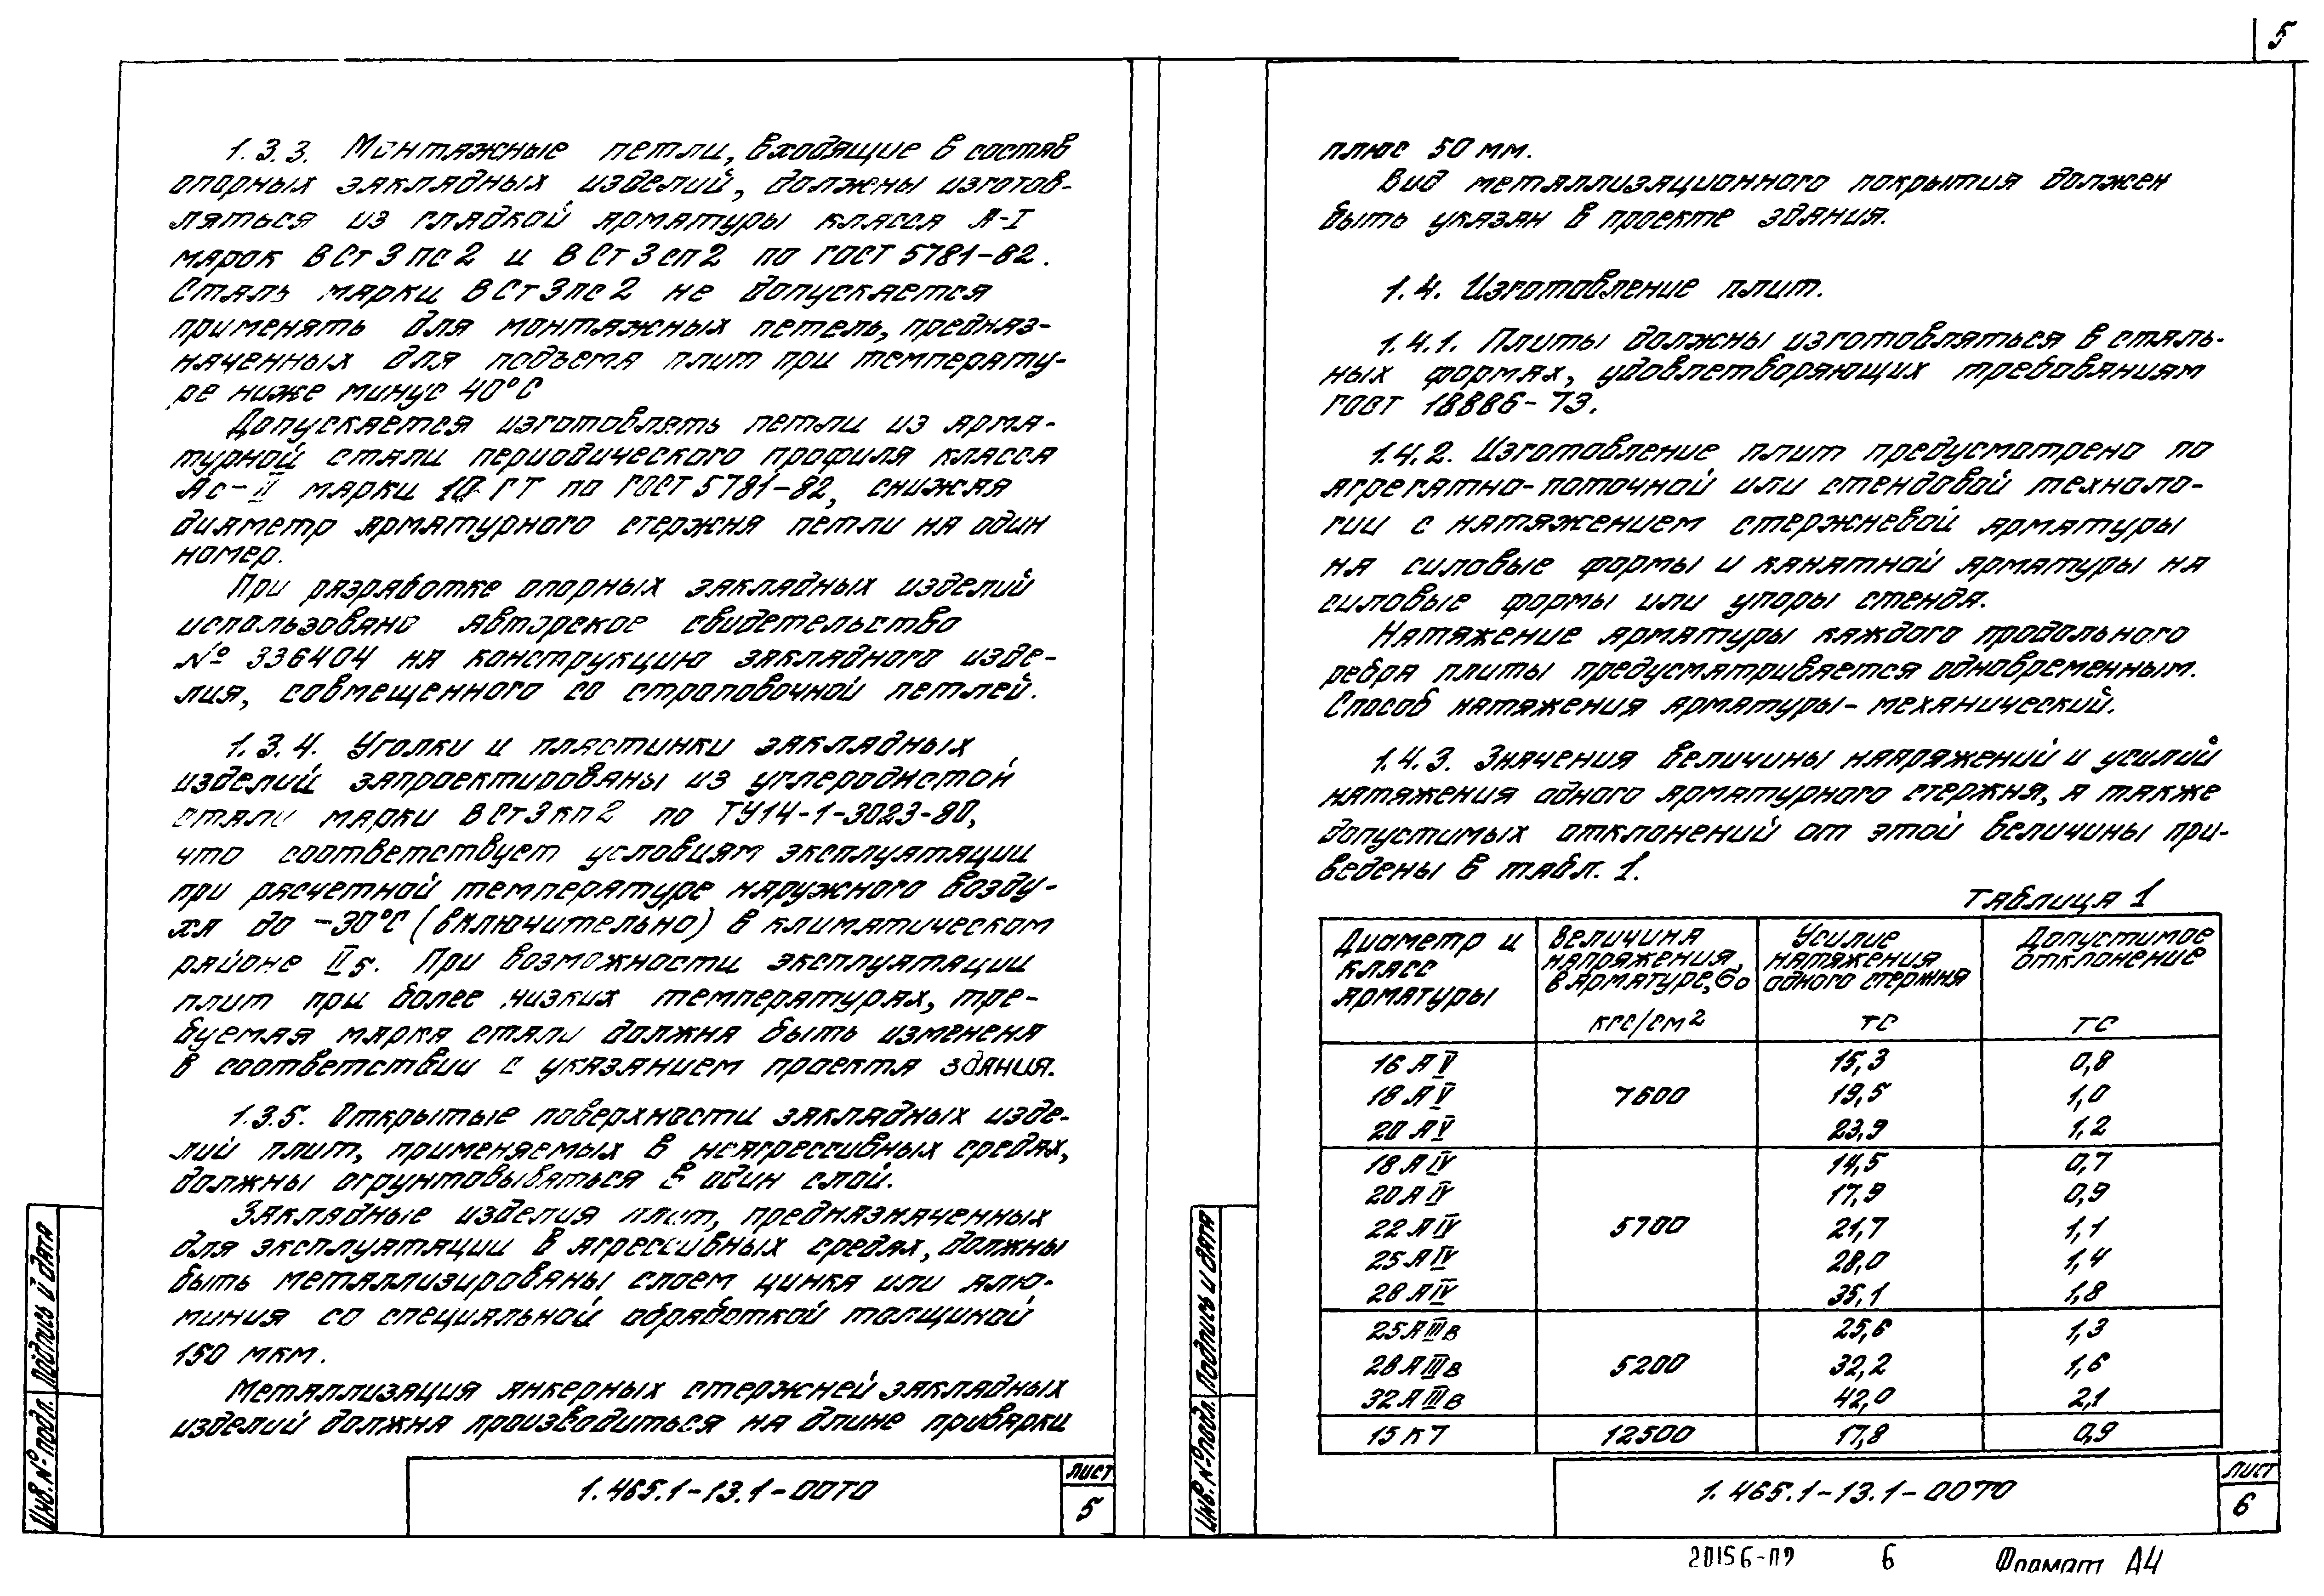 5
1.3.3. Монтажные петли, входящие в состав
опорных закладных изделий, должны изготов-
ляться из гладкой арматуры класса А-I
марок ВСт3пс2 и ВСт3сп2 по ГОСТ 5781-82.
Сталь марки ВСт3пс2 не допускается
применять для монтажных петель, предназ-
наченных для подъема плит при температу-
ре ниже минус 40°С
Допускается изготовлять петли из арма-
турной стали периодического профиля класса
Ас-II марки 10ГТ по ГОСТ 5781-82, снижая
диаметр арматурного стержня петли на один
номер.
При разработке опорных закладных изделий
использовано авторское свидетельство
№ 336404 на конструкцию закладного изде-
лия, совмещенного со строповочной петлей.
1.3.4. Уголки и пластинки закладных
изделий запроектированы из углеродистой
стали марки ВСт3кп2 по ТУ14-1-3023-80,
что соответствует условиям эксплуатации
при расчетной температуре наружного возду-
ха до -30°С (включительно) в климатическом
районе II5. При возможности эксплуатации
плит при более низких температурах, тре-
буемая марка стали должна быть изменена
в соответствии с указанием проекта здания.
1.3.5. Открытые поверхности закладных изде-
лий плит, применяемых в неагрессивных средах,
должны огрунтовываться в один слой.
Закладные изделия плит, предназначенных
для эксплуатации в агрессивных средах, должны
быть металлизированы слоем цинка или алю-
миния со специальной обработкой толщиной
150 мкм.
Металлизация анкерных стержней закладных
изделий должна производиться на длине приварки
1.465.1-13.1-00ТО
Лист
5
Инв. № подл. Подпись и дата
плюс 50 мм.
Вид металлизационного покрытия должен
быть указан в проекте здания.
1.4. Изготовление плит.
1.4.1. Плиты должны изготовляться в сталь-
ных формах, удовлетворяющих требованиям
ГОСТ 18886-73.
1.4.2. Изготовление плит предусмотрено по
агрегатно-поточной или стендовой техноло-
гии с натяжением стержневой арматуры
на силовые формы и канатной арматуры на
силовые формы или упоры стенда.
Натяжение арматуры каждого продольного
ребра плиты предусматривается одновременным.
Способ натяжения арматуры - механический.
1.4.3. Значения величины напряжений и усилий
натяжения одного арматурного стержня, а также
допустимых отклонений от этой величины при-
ведены в табл. 1.
Таблица 1
Диаметр и класс арматуры | Величина напряжения в арматуре, σ0 кгс/см2 | Усилие натяжения одного стержня тс | Допустимое отклонение тс
16 АV | 15,3 | 0,8
18 АV | 7600 | 19,5 | 1,0
20 АV | 23,9 | 1,2
18 АIV | 14,5 | 0,7
20 АIV | 17,9 | 0,9
22 АIV | 5700 | 21,7 | 1,1
25 АIV | 28,0 | 1,4
28 АIV | 35,1 | 1,8
25 АIIIв | 25,6 | 1,3
28 АIIIв | 5200 | 32,2 | 1,6
32 АIIIв | 42,0 | 2,1
15 К7 | 12500 | 17,8 | 0,9
1.465.1-13.1-00ТО
Лист
6
Инв. № подл. Подпись и дата
20156-09 6 Формат А4